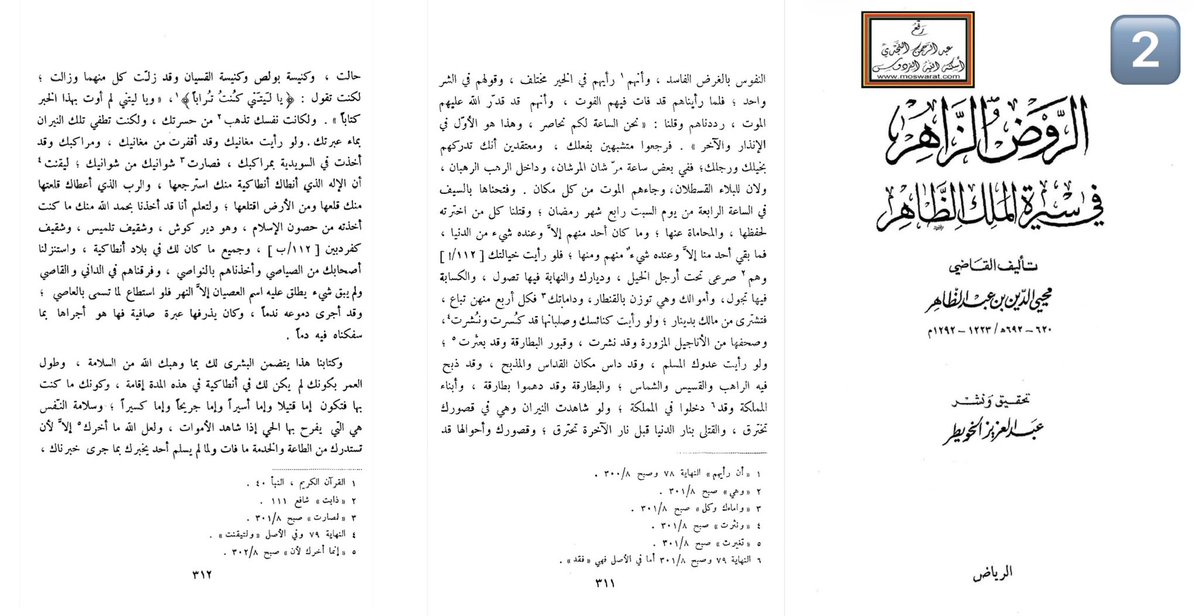 2
رفع
عبد الرحمن النجدي
أسكنه الله الفردوس
www.moswarat.com
الرَّوضُ الزَّاهِرُ
في سيرة الملك الظاهر
تأليف القاضي
محيي الدين بن عبد الظاهر
٦٢٠ – ٦٩٢ھ / ١٢٢٣ – ١٢٩٢م
تحقيق ونشر
عبد العزيز الخويطر
الرياض
النفوس بالغرض الفاسد ، وأنهم١ رأيهم في الخير مختلف ، وقولهم في الشر
واحد ؛ فلما رأيناهم قد فات فيهم الفوت ، وأنهم قد قدّر الله عليهم
الموت ، رددناهم وقلنا : «نحن الساعة لكم نحاصر ، وهذا هو الأوّل في
الإنذار والآخر» . فرجعوا متشبهين بفعلك ، ومعتقدين أنك تدركهم
بخيلك ورجلك؛ ففي بعض ساعة مرّ شان المرشان، وداخل الرهب الرهبان ،
ولان للبلاء القسطلان، وجاءهم الموت من كل مكان . وفتحناها بالسيف
في الساعة الرابعة من يوم السبت رابع شهر رمضان ؛ وقتلنا كل من اخترته
لحفظها ، والمحاماة عنها ؛ وما كان أحد منهم إلاَّ وعنده شيء من الدنيا ،
فما بقي أحد منا إلاَّ وعنده شيءٌ منهم ومنها ؛ فلو رأيت خيالتك [١١٢/ا]
وهم٢ صرعى تحت أرجل الخيل ، وديارك والنهابة فيها تصول ، والكسابة
فيها تجول، وأموالك وهي توزن بالقنطار، وداماتك٣ فكل أربع منهن تباع ،
فتشترى من مالك بدينار ؛ ولو رأيت كنائسك وصلبانها قد كُسرت ونُشرت٤،
وصحفها من الأناجيل المزورة قد نشرت ، وقبور البطارقة وقد بعثرت٥ ؛
ولو رأيت عدوك المسلم ، وقد داس مكان القداس والمذبح ، وقد ذبح
فيه الراهب والقسيس والشماس ؛ والبطارقة وقد دهموا بطارقة ، وأبناء
المملكة وقد٦ دخلوا في المملكة ؛ ولو شاهدت النيران وهي في قصورك
تخترق ، والقتلى بنار الدنيا قبل نار الآخرة تحترق ؛ وقصورك وأحوالها قد
١ «أن رأيهم» النهاية ٧٨ وصبح ٣٠٠/٨ .
٢ «وهي» صبح ٣٠١/٨ .
٣ «واماءك وكل» صبح ٣٠١/٨ .
٤ «ونثرت» صبح ٣٠١/٨ .
٥ «تغيرت» صبح ٣٠١/٨ .
٦ النهاية ٧٩ وصبح ٣٠١/٨ أما في الأصل فهي «فقد» .
٣١١
حالت ، وكنيسة بولص وكنيسة القسيان وقد زلّت كل منهما وزالت ؛
لكنت تقول : ﴿يا لَيْتَني كُنتُ تُراباً﴾١ ، «ويا ليتني لم أوت بهذا الخبر
كتاباً» . ولكانت نفسك تذهب٢ من حسرتك ، ولكنت تطفي تلك النيران
بماء عبرتك. ولو رأيت مغانيك وقد أقفرت من مغانيك ، ومراكبك وقد
أخذت في السويدية بمراكبك ، فصارت٣ شوانيك من شوانيك ؛ ليقنت٤
أن الإله الذي أنطاك أنطاكية منك استرجعها ، والرب الذي أعطاك قلعتها
منك قلعها ومن الأرض اقتلعها ؛ ولتعلم أنا قد أخذنا بحمد الله منك ما كنت
أخذته من حصون الإسلام ، وهو دير كوش ، وشقيف تلميس ، وشقيف
كفردبين [١١٢/ب] ، وجميع ما كان لك في بلاد أنطاكية ، واستنزلنا
أصحابك من الصياصي وأخذناهم بالنواصي ، وفرقناهم في الداني والقاصي
ولم يبق شيء يطلق عليه اسم العصيان إلاَّ النهر فلو استطاع لما تسمى بالعاصي ؛
وقد أجرى دموعه ندماً ، وكان يذرفها عبرة صافية فها هو أجراها بما
سفكناه فيه دماً .
وكتابنا هذا يتضمن البشرى لك بما وهبك الله من السلامة ، وطول
العمر بكونك لم يكن لك في أنطاكية في هذه المدة إقامة ، وكونك ما كنت
بها فتكون إما قتيلا وإما أسيراً وإما جريحاً وإما كسيراً ؛ وسلامة النفس
هي التي يفرح بها الحي إذا شاهد الأموات ، ولعل الله ما أخرك٥ إلاَّ لأن
تستدرك من الطاعة والخدمة ما فات ولما لم يسلم أحد يخبرك بما جرى خبرناك ،
١ القرآن الكريم ، النبأ ٤٠ .
٢ «ذابت» شافع ١١١ .
٣ «لصارت» صبح ٣٠١/٨ .
٤ النهاية ٧٩ وفي الأصل «ولتيقنت» .
٥ «إنما أخرك لأن» صبح ٣٠٢/٨ .
٣١٢